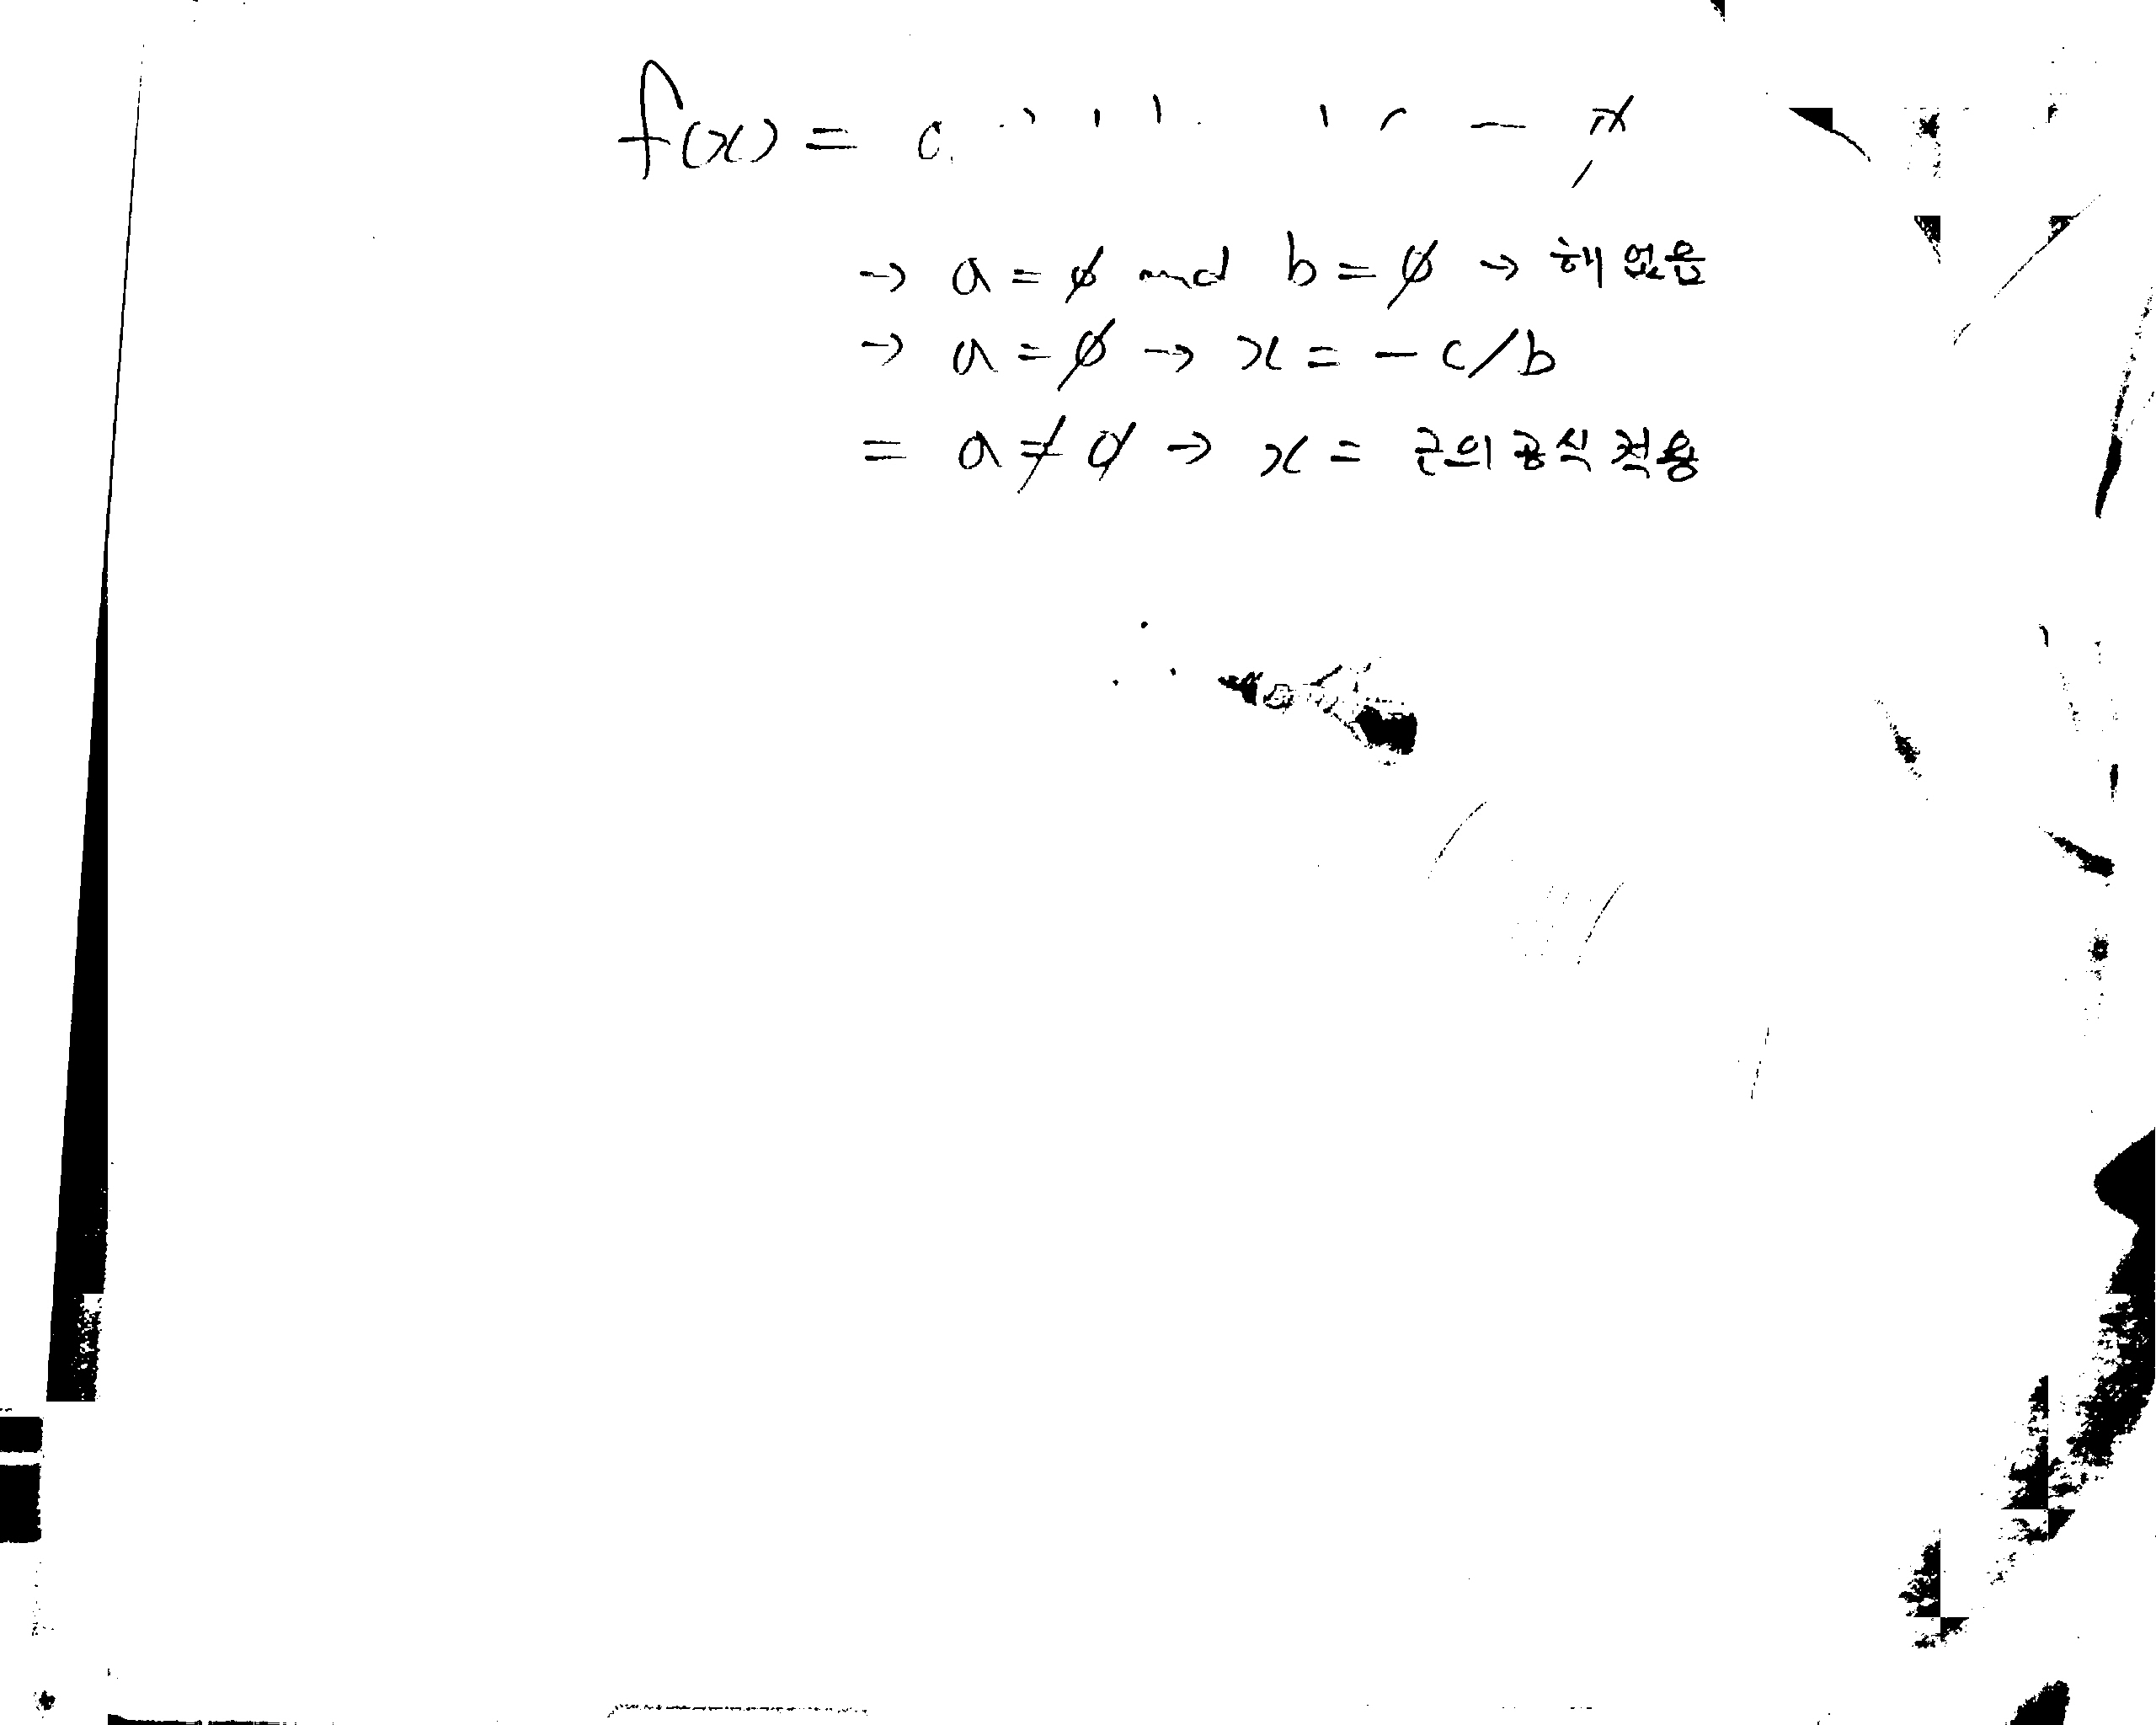 f(x) =
→ a = ø and b = ø → 해 없음
→ a = ø → x = - c/b
= a ≠ ø → x = 근의 공식 적용